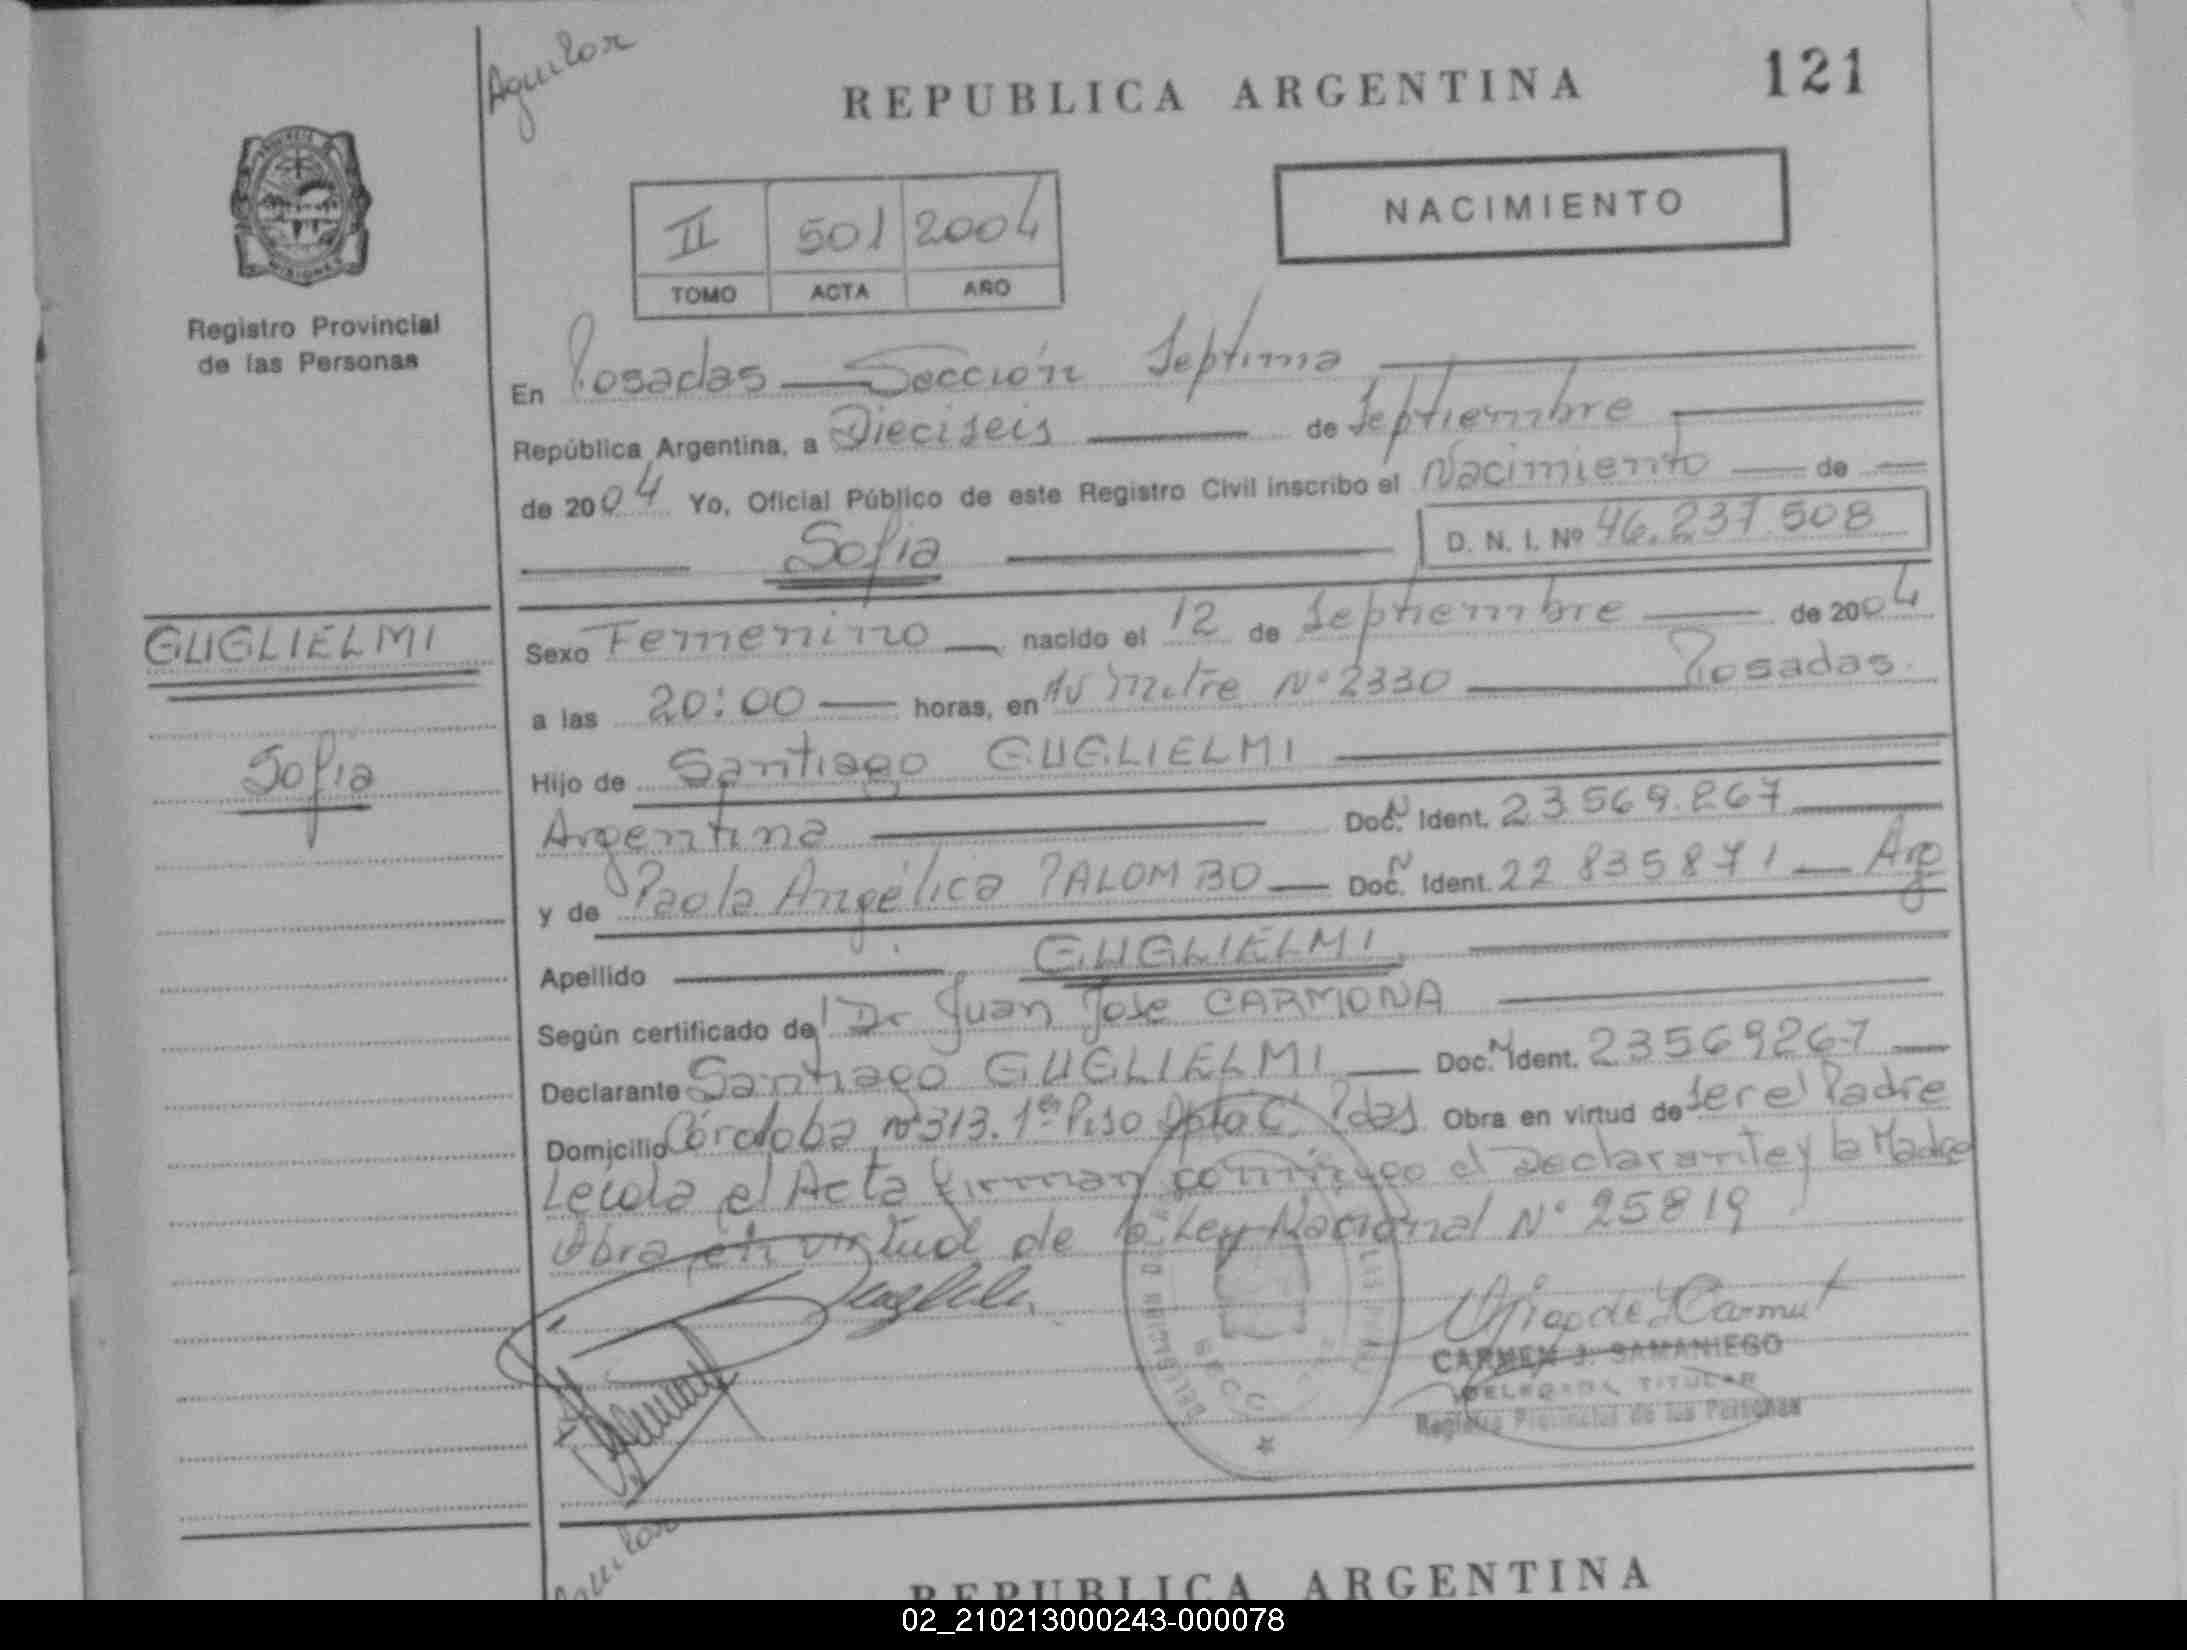 Aguilar
REPUBLICA ARGENTINA 121
NACIMIENTO
II 501 2004
TOMO ACTA AÑO
MISIONES
Registro Provincial
de las Personas
En Posadas Sección Septima
República Argentina, a Dieciseis de Septiembre
de 2004 Yo, Oficial Público de este Registro Civil inscribo el Nacimiento de
Sofia D. N. I. Nº 46.237.508
GUGLIELMI
Sofia
Sexo Femenino nacido el 12 de Septiembre de 2004
a las 20:00 horas, en Av Mitre Nº 2330 Posadas.
Hijo de Santiago GUGLIELMI
Argentina Doc. N Ident. 23.569.267
y de Paola Angélica PALOMBO Doc. N Ident. 22 835871 Arg
Apellido GUGLIELMI
Según certificado del Dr Juan Jose CARMONA
Declarante Santiago GUGLIELMI Doc. N Ident. 23569267
Domicilio Córdoba nº 313. 1er Piso Dpto C. Pdas. Obra en virtud de ser el Padre
Leida el Acta Firman conmigo el Declarante y la Madre
Obra en virtud de la Ley Nacional Nº 25819
CARMEN J. SAMANIEGO
DELEGADA TITULAR
Registro Provincial de las Personas
SECC
REPUBLICA ARGENTINA
02_210213000243-000078